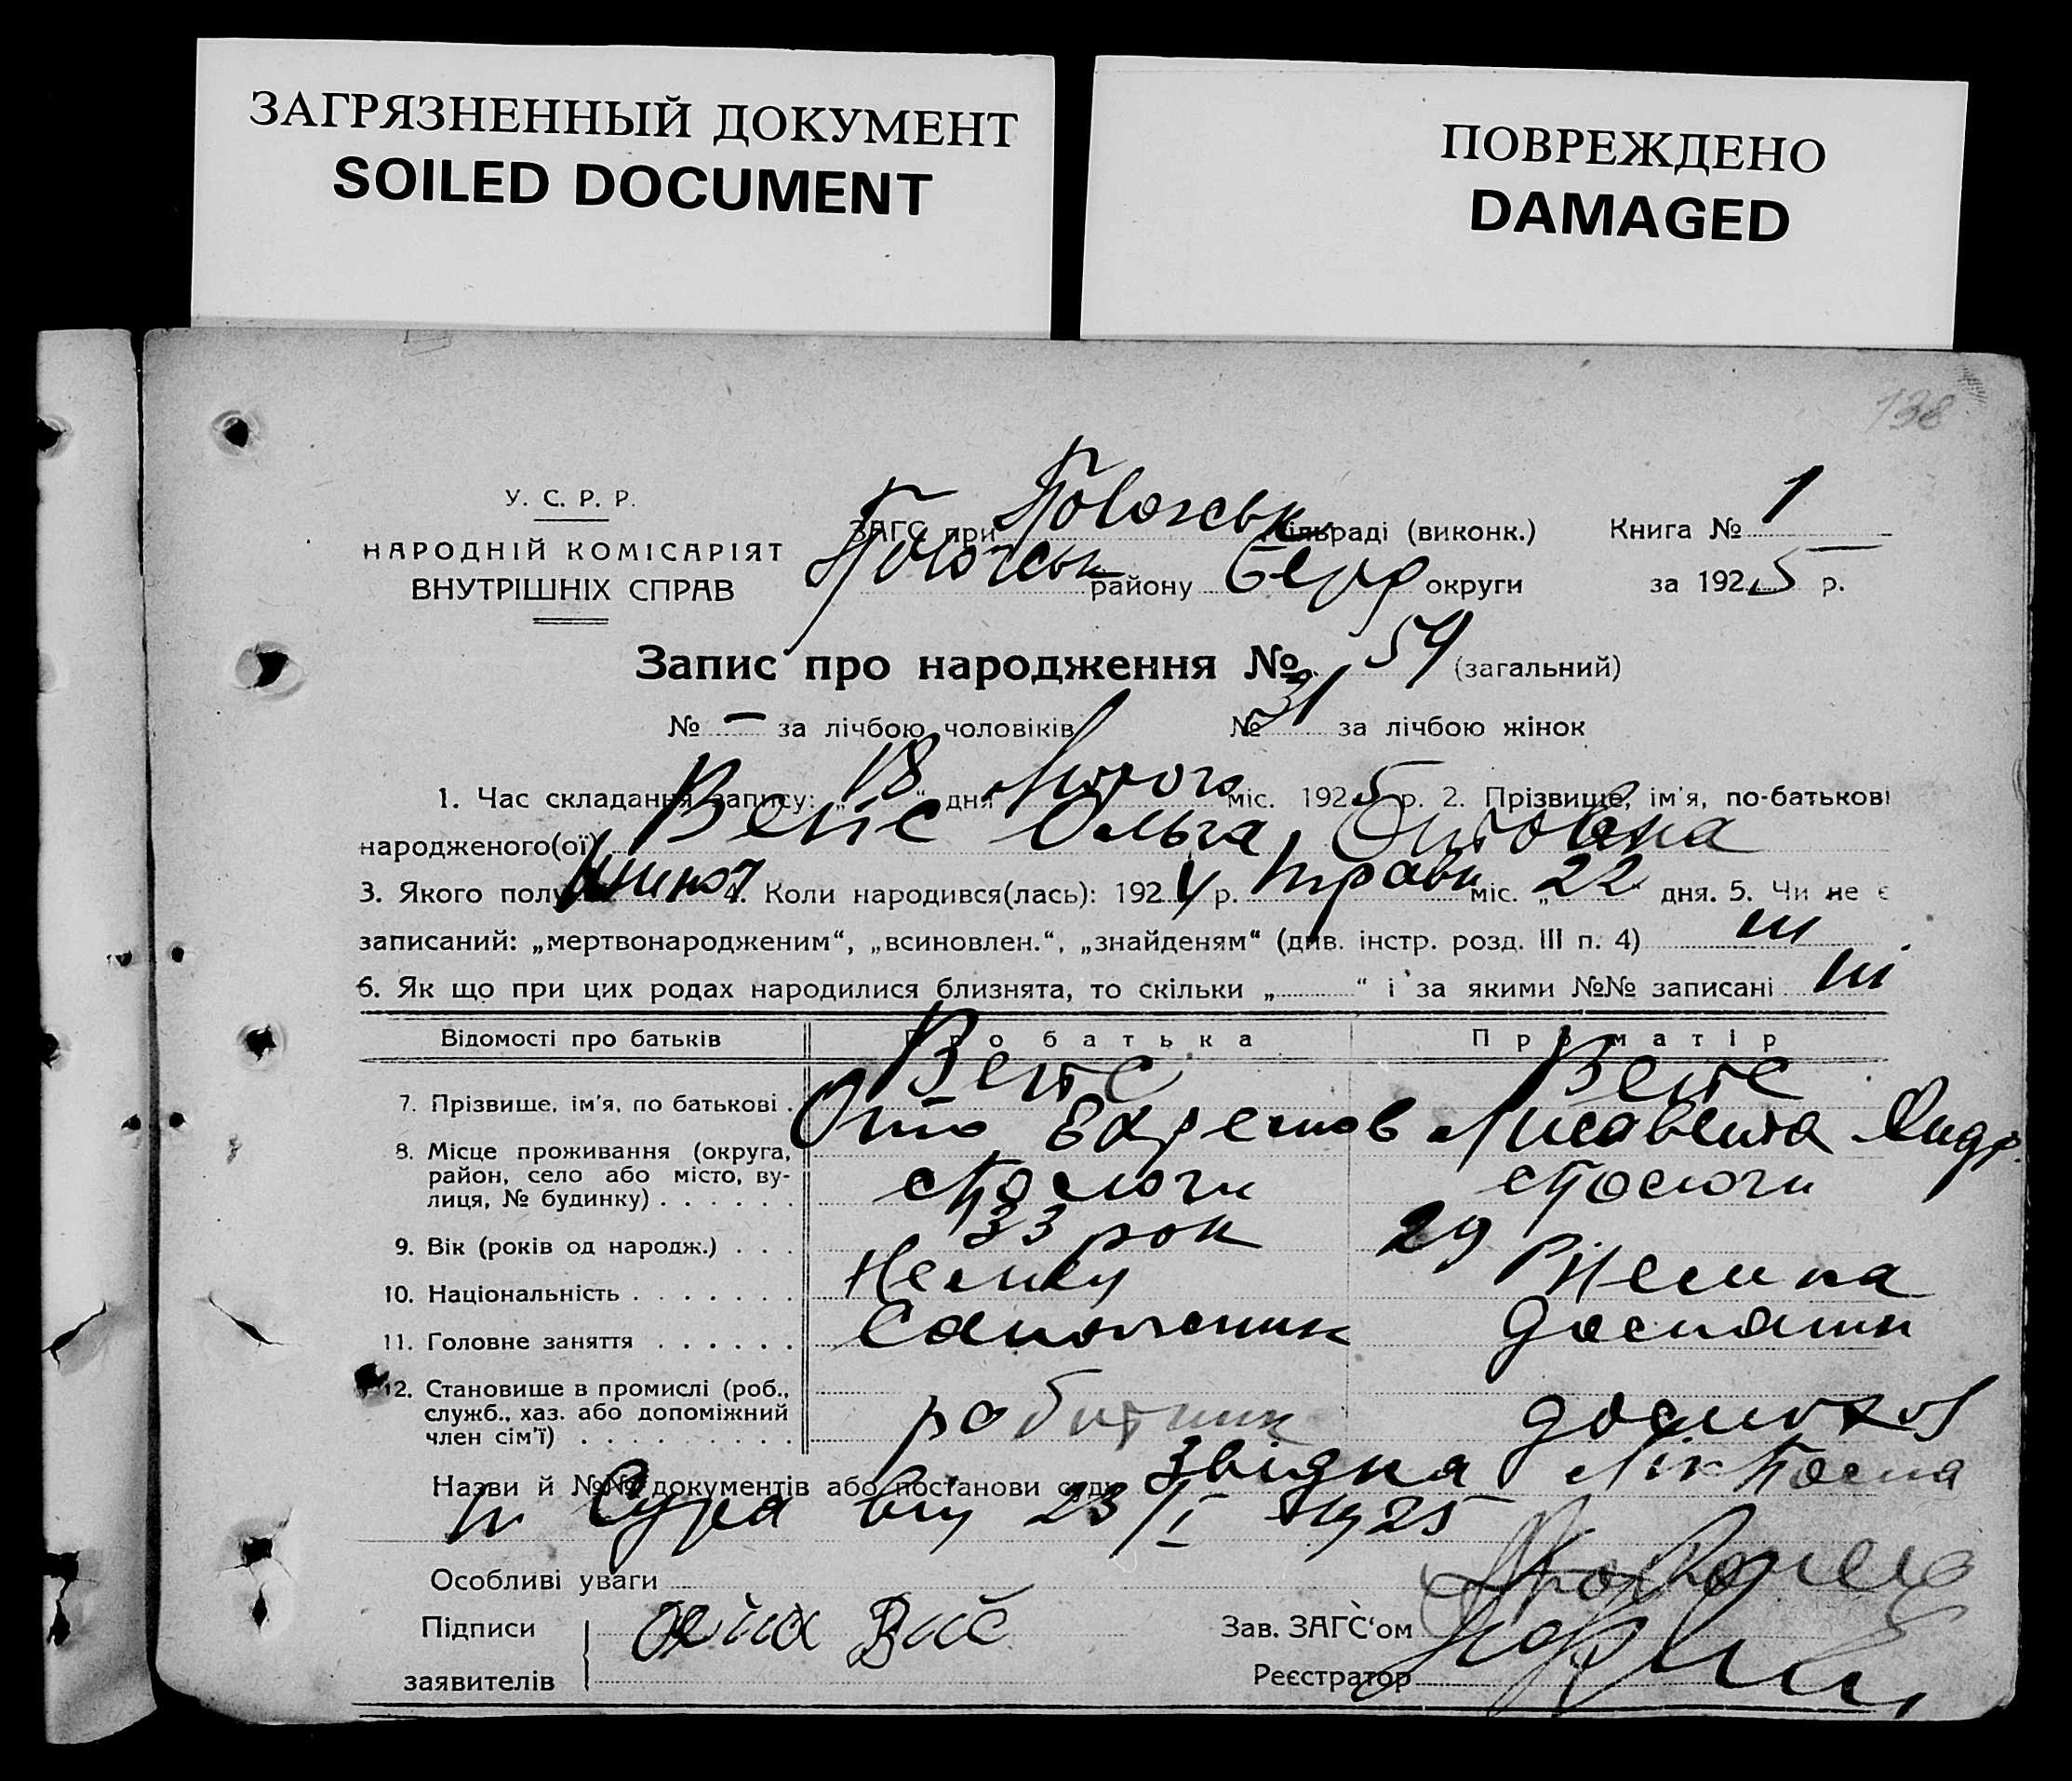 ЗАГРЯЗНЕННЫЙ ДОКУМЕНТ
SOILED DOCUMENT
ПОВРЕЖДЕНО
DAMAGED
138
У. С. Р. Р.
НАРОДНІЙ КОМІСАРІЯТ
ВНУТРІШНІХ СПРАВ
ЗАГС при Пологськ сільраді (виконк.)
Пологськ району Берд округи
Книга № 1
за 1925 р.
Запис про народження № 54 (загальний)
№ – за лічбою чоловіків № 31 за лічбою жінок
1. Час складання запису: „18“ дня Лютого міс. 1925 р. 2. Прізвище, ім'я, по-батькові
народженого(ої) Вейс Ольга Оттовна
3. Якого полу жіноч 4. Коли народився(лась): 1924 р. Травн міс. „22“ дня. 5. Чи не є
записаний: „мертвонародженим“, „всиновлен.“, „знайденям“ (див. інстр. розд. III п. 4) ні
6. Як що при цих родах народилися близнята, то скільки „ “ і за якими №№ записані ні
Відомості про батьків Про батька Про матір
7. Прізвище, ім'я, по батькові . Вейс Отто Вейс Лисавета Андр.
8. Місце проживання (округа,
район, село або місто, ву-
лиця, № будинку) . . . . . . ст Пологи ст Пологи
9. Вік (років од народж.) . . . 33 рок 29 р
10. Національність . . . . . . . Немец Немка
11. Головне заняття . . . . . .
12. Становище в промислі (роб.,
служб., хаз. або допоміжний
член сім'ї) . . . . . . . . . робітник
Назви й №№ документів або постанови суду Звідка
Суда від 23/I 1925
Особливі уваги
Підписи
заявителів
Зав. ЗАГС'ом
Реєстратор